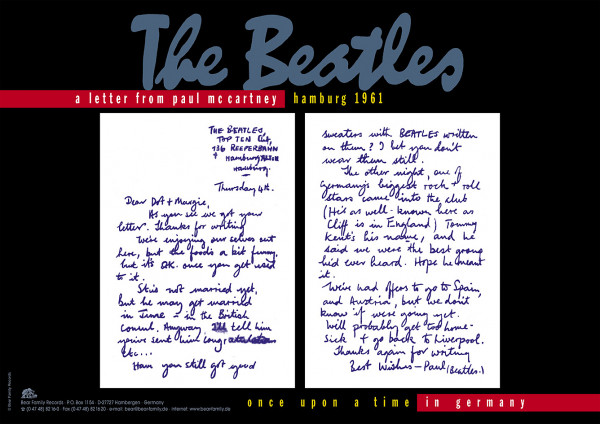 The Beatles
a letter from paul mccartney hamburg 1961
THE BEATLES,
TOP TEN Club,
136 REEPERBAHN
Hamburg
Hamburg.
Thursday 4th.
Dear Dot + Margie,
As you see we got your
letter. Thanks for writing
We're enjoying our selves out
here, but the food's a bit funny,
but it's O.K. once you get used
to it.
Stu's not married yet,
but he may get married
in June – in the British
Consul. Anyway, I'll tell him
you've sent him congr
etc...
Have you still got your
sweaters with BEATLES written
on them? I bet you don't
wear them still.
The other night, one of
Germany's biggest rock + roll
stars came into the club
(He's as well-known here as
Cliff is in England) Tommy
Kent's his name, and he
said we were the best group
he'd ever heard. Hope he meant
it.
We've had offers to go to Spain,
and Austria, but we don't
know if we're going yet.
Will probably get too home-
sick & go back to Liverpool.
Thanks again for writing
Best Wishes – Paul (Beatles.)
© Bear Family Records
Bear Family Records · P.O. Box 1154 · D-27727 Hambergen · Germany
(0 47 48) 82 16-0 · Fax (0 47 48) 82 16 20 · e-mail: bear@bear-family.de · internet: www.bear-family.de
once upon a time in germany